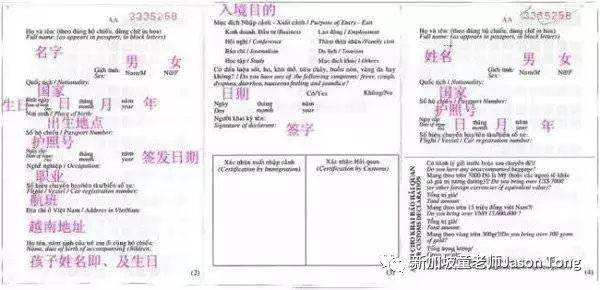 AA 3335258
Họ và tên: (theo đúng hộ chiếu, dùng chữ in hoa)
Full name: (as appears in passport, in block letters)
名字
男 女
Giới tính: Nam/M Nữ/F
Sex:
Quốc tịch / Nationality:
国家
生日 日 月 年
Ngày sinh tháng năm
Date of birth month year
Nơi sinh / Place of birth:
出生地点
Số hộ chiếu / Passport Number:
护照号
Ngày cấp tháng năm
Date of issue month year
签发日期
Nghề nghiệp / Occupation:
职业
Số hiệu chuyến bay/tên tàu/biển số xe:
Flight / Vessel / Car registration number:
航班
Địa chỉ ở Việt Nam / Address in VietNam:
越南地址
Họ tên, năm sinh của trẻ em đi cùng hộ chiếu:
Name, date of birth of accompanying children:
孩子姓名即、及生日
(2)
入境目的
Mục đích Nhập cảnh - Xuất cảnh / Purpose of Entry - Exit
Kinh doanh, Đầu tư/Business Lao động / Employment
Hội nghị / Conference Thăm thân nhân/Family visit
Báo chí / Journalism Du lịch / Tourism
Học tập / Study Mục đích khác / Others
Có dấu hiệu sốt, ho, khó thở, tiêu chảy, buồn nôn, vàng da hay
không? / Do you have any of the following symptoms: fever, cough,
dyspnea, diarrhea, nauseous feeling and jaundice?
Có/Yes Không/No
日期
Ngày tháng năm
Date month year
Người khai ký tên:
Signature of declarant:
签字
Xác nhận xuất nhập cảnh
(Certification by Immigration)
Xác nhận Hải quan
(Certification by Customs)
AA 3335258
Họ và tên: (theo đúng hộ chiếu, dùng chữ in hoa)
Full name: (as appears in passport, in block letters)
姓名
男 女
Giới tính: Nam/M Nữ/F
Sex:
Quốc tịch / Nationality:
国家
Số hộ chiếu / Passport Number:
护照号
日 月 年
Ngày cấp tháng năm
Date of issue month year
Số hiệu chuyến bay/tên tàu/biển số xe:
Flight / Vessel / Car registration number:
Có hành lý gửi trước hoặc sau chuyến đi?/
Do you have any unaccompanied baggage?
Mang theo trên 7000 Đô la Mỹ hoặc các ngoại tệ khác
có giá trị tương đương?/ Do you bring over US$ 7000
(or other foreign currencies of equivalent value)?
Tổng trị giá/
Total amount
Mang theo trên 15 triệu đồng Việt Nam?/
Do you bring over VNĐ 15,000,000 ?
Tổng trị giá/
Total amount
Mang theo vàng trên 300gr?/Do you bring over 300 gram
of gold?
Tổng trọng lượng/
(4)
新加坡童老师Jason Tong